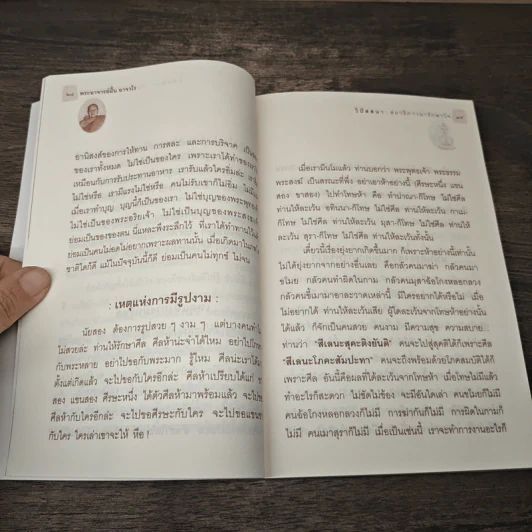 ๒๘ พระอาจารย์ฝั้น อาจาโร
อานิสงส์ของการให้ทาน การสละ และการบริจาค เป็น
ของเราทั้งหมด ไม่ใช่เป็นของใคร เพราะเราได้ทำของ
เหมือนกับการรับประทานอาหาร เรารับแล้วใครอิ่มล่ะ
ไม่ใช่หรือ เรามีแรงไม่ใช่หรือ คนไม่รับเขาก็ไม่อิ่ม ไม่มี
เมื่อเราทำบุญ บุญนี้ก็เป็นของเรา ไม่ใช่บุญของพระพุทธ
ไม่ใช่เป็นของพระอริยเจ้า ไม่ใช่เป็นบุญของพระสงฆ์
ย่อมเป็นของของตน นี่แหละพึงระลึกไว้ ที่เราได้ทำทานไว้
ย่อมเป็นคนไม่อดไม่อยากเพราะผลทานนั้น เมื่อเกิดมาใน
ชาติใดก็ดี แม้ในปัจจุบันนี้ก็ดี ย่อมเป็นคนไม่ทุกข์ ไม่จน
: เหตุแห่งการมีรูปงาม :
นัยสอง ต้องการรูปสวย ๆ งาม ๆ แต่บางคนทำ
ไม่สวยล่ะ ท่านให้รักษาศีล ศีลห้านะจำได้ไหม อย่าไป
กับพระหลาย อย่าไปขอกับพระมาก รู้ไหม ศีลน่ะเรา
ตั้งแต่เกิดแล้ว จะไปขอกับใครอีกล่ะ ศีลห้าเปรียบได้แก่
สอง แขนสอง ศีรษะหนึ่ง ได้ตัวศีลห้ามาพร้อมแล้ว จะไป
ศีลห้ากับใครอีกล่ะ จะไปขอศีรษะกับใคร จะไปขอแขน
กับใคร ใครเล่าเขาจะให้ หือ !
เมื่อเรามีนโมแล้ว ท่านบอกว่า พระพุทธเจ้า พระธรรม
พระสงฆ์ เป็นสรณะที่พึ่ง อย่าเอาห้าอย่างนี้ (ศีรษะหนึ่ง แขน
สอง ขาสอง) ไปทำโทษห้า คือ ทำปาณา-ก็โทษ ไม่ใช่ศีล
ท่านให้ละเว้น อทินนา-ก็โทษ ไม่ใช่ศีล ท่านให้ละเว้น กาเม-
ก็โทษ ไม่ใช่ศีล ท่านให้ละเว้น มุสา-ก็โทษ ไม่ใช่ศีล ท่านให้
ละเว้น สุรา-ก็โทษ ไม่ใช่ศีล ท่านให้ละเว้นทั้งนั้น
เดี๋ยวนี้เรื่องยุ่งยากเกิดขึ้นมาก ก็เพราะห้าอย่างนี้เท่านั้น
ไม่ได้ยุ่งยากจากอย่างอื่นเลย คือกลัวคนมาฆ่า กลัวคนมา
ขโมย กลัวคนทำผิดในกาม กลัวคนมุสาฉ้อโกงหลอกลวง
กลัวคนขี้เมามาอาละวาดเหล่านี้ มีใครอยากได้หรือไม่ เมื่อ
ไม่อยากได้ ท่านให้ละเว้นเสีย ผู้ใดละเว้นจากโทษห้าอย่างนั้น
ได้แล้ว ก็จักเป็นคนสวย คนงาม มีความสุข ความสบาย
ท่านว่า "สีเลนะสุคะติงยันติ" คนจะไปสู่สุคติได้ก็เพราะศีล
"สีเลนะโภคะสัมปะทา" คนจะถึงพร้อมด้วยโภคสมบัติได้ก็
เพราะศีล อันนี้คือผลที่ได้ละเว้นจากโทษห้า เมื่อโทษไม่มีแล้ว
ทำอะไรก็สะดวก ไม่ขัดไม่ข้อง จะมีอันใดเล่า คนขโมยก็ไม่มี
คนฉ้อโกงหลอกลวงก็ไม่มี การฆ่ากันก็ไม่มี การผิดในกามก็
ไม่มี คนเมาสุราก็ไม่มี เมื่อเป็นเช่นนี้ เราจะทำการงานอะไรก็